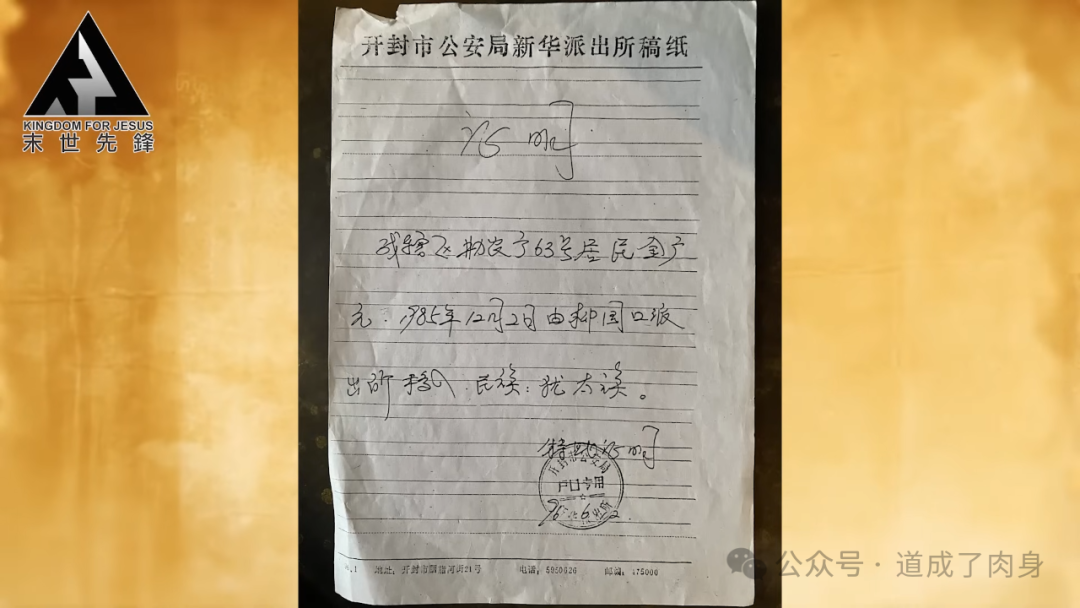 KINGDOM FOR JESUS
末世先鋒
开封市公安局新华派出所稿纸
证明
我辖区勤农亍63号居民金广
元.1985年12月2日由柳园口派
出所移入.民族:犹太族。
特此证明
开封市公安局
户口专用
96.6.2.
地址:开封市 21号 电话:5950626 邮编:475000
公众号·道成了肉身